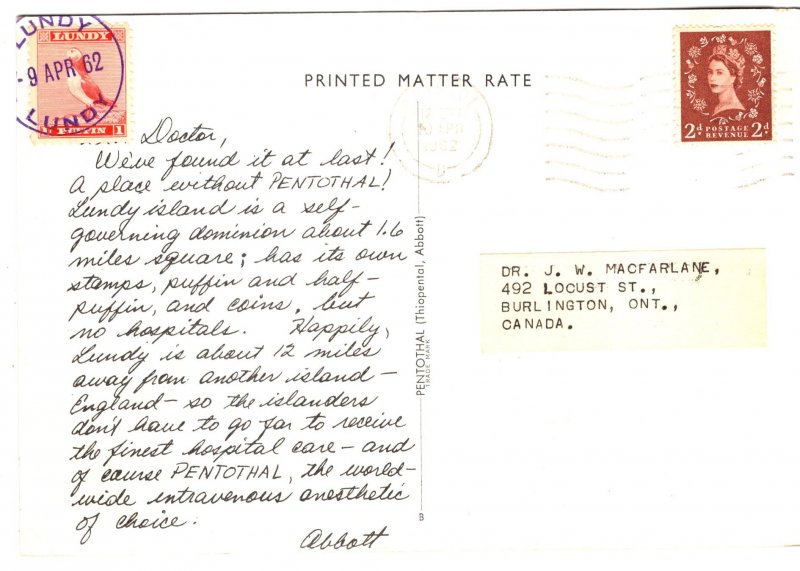 LUNDY
9 APR 62
LUNDY
LUNDY
PUFFIN 1
PRINTED MATTER RATE
2d POSTAGE REVENUE 2d
Doctor,
We've found it at last!
A place without PENTOTHAL!
Lundy island is a self-
governing dominion about 1.6
miles square; has its own
stamps, puffin and half-
puffin, and coins, but
no hospitals. Happily,
Lundy is about 12 miles
away from another island-
England- so the islanders
don't have to go far to receive
the finest hospital care- and
of course PENTOTHAL, the world-
wide intravenous anesthetic
of choice.
Abbott
PENTOTHAL (Thiopental, Abbott)
TRADE MARK
B
DR. J. W. MACFARLANE,
492 LOCUST ST.,
BURLINGTON, ONT.,
CANADA.